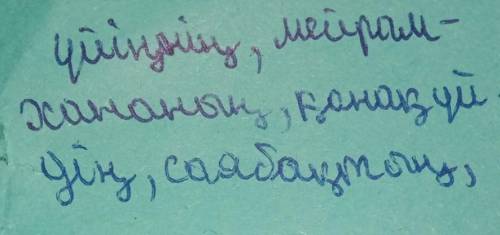 үйіңнің, мейрам-
хананың, қонақ үй
дің, саябақтың,